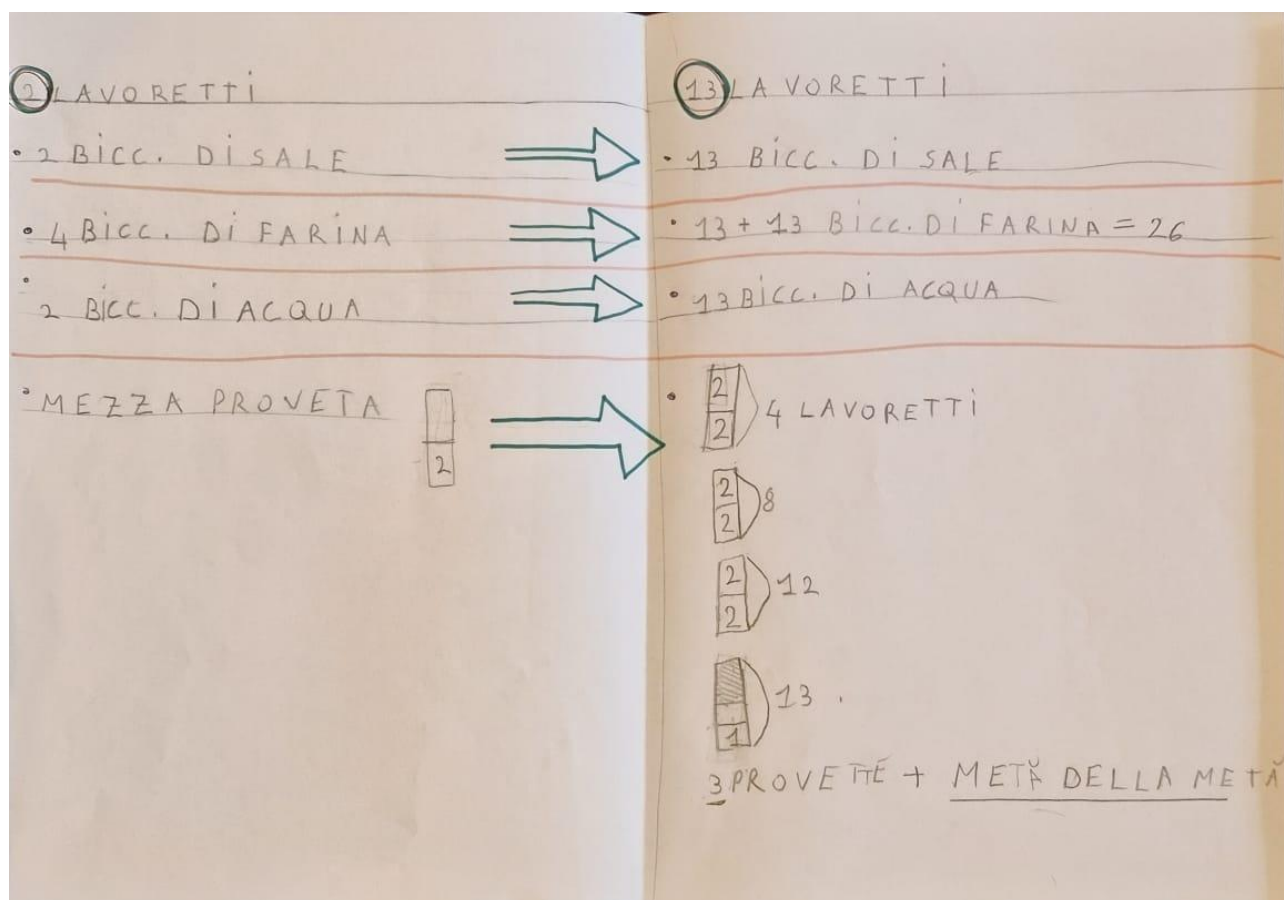 2 LAVORETTI
• 2 BICC. DI SALE
• 4 BICC. DI FARINA
• 2 BICC. DI ACQUA
• MEZZA PROVETA
2
13 LAVORETTI
• 13 BICC. DI SALE
• 13 + 13 BICC. DI FARINA = 26
• 13 BICC. DI ACQUA
• 2 2 4 LAVORETTI
2 2 8
2 2 12
1 13 .
3 PROVETTE + METĂ DELLA METĂ